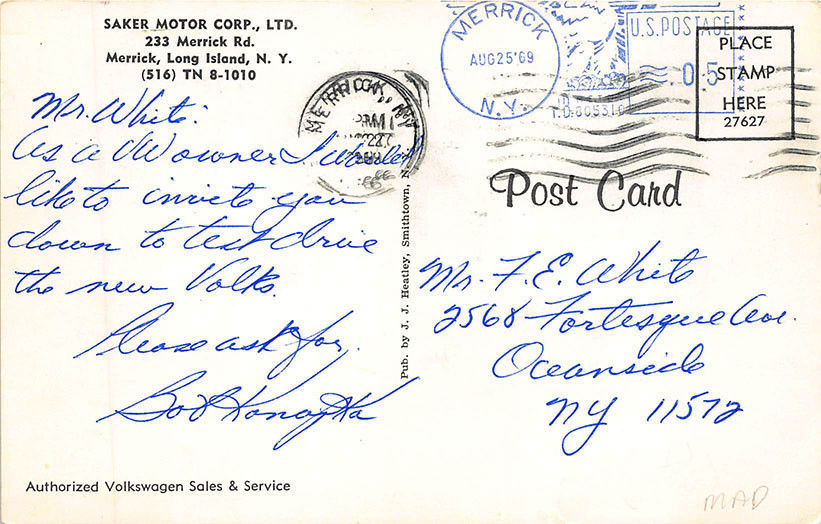 SAKER MOTOR CORP., LTD.
233 Merrick Rd.
Merrick, Long Island, N. Y.
(516) TN 8-1010
Mr. White:
As a VW owner I would
like to invite you
down to test drive
the new Volks.
Please ask for,
Bob Konopka
Authorized Volkswagen Sales & Service
Pub. by J. J. Heatley, Smithtown, N
MERRICK
AUG25'69
N.Y.
U.S. POSTAGE
.05
MERRICK
PM
PLACE
STAMP
HERE
27627
Post Card
Mr. F. E. White
2568 Fortesque Ave.
Oceanside
NY 11572
MAD